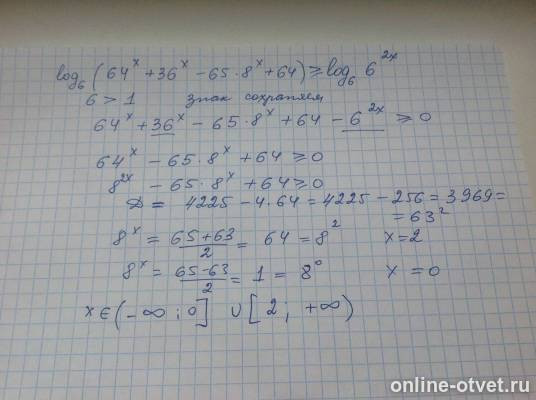 log₆(64ˣ + 36ˣ − 65·8ˣ + 64) ⩾ log₆ 6²ˣ
6 > 1 знак сохраняем
64ˣ + 36ˣ − 65·8ˣ + 64 − 6²ˣ ⩾ 0
64ˣ − 65·8ˣ + 64 ⩾ 0
8²ˣ − 65·8ˣ + 64 ⩾ 0
D = 4225 − 4·64 = 4225 − 256 = 3969 =
= 63²
8ˣ = (65+63)/2 = 64 = 8² x = 2
8ˣ = (65−63)/2 = 1 = 8⁰ x = 0
x ∈ (−∞; 0] ∪ [2; +∞)
online-otvet.ru